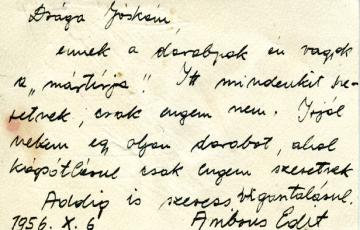 Drága Jóskám,
ennek a darabjának én vagyok
a „mártírja". Itt mindenkit sze-
retnek, csak engem nem. Írjál
nekem egy olyan darabot, ahol
kárpótlásul csak engem szeretnek
Addig is szeress vigasztalásul.
1956. X. 6 Ambrus Edit